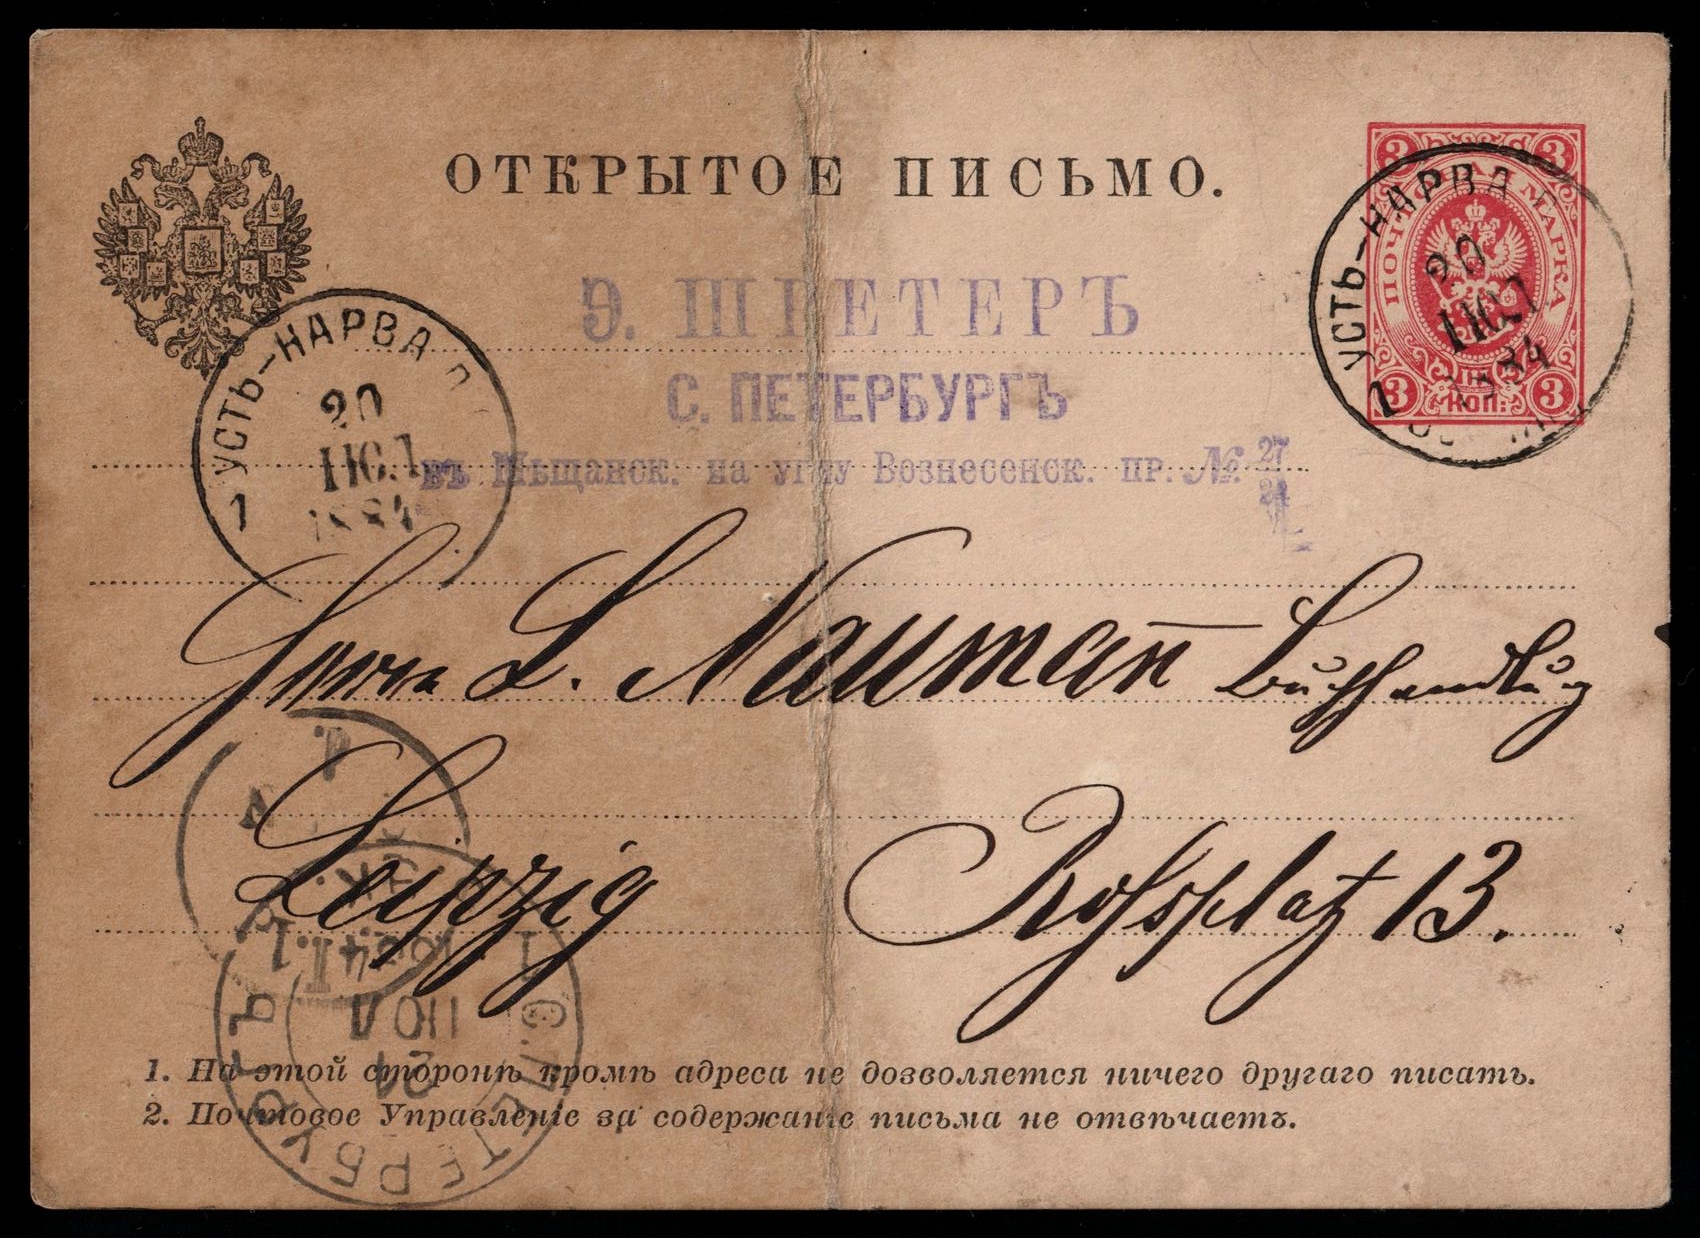 ОТКРЫТОЕ ПИСЬМО.
3 3
ПОЧТ МАРКА
3 КОП. 3
УСТЬ-НАРВА
20
ІЮЛ
1884
1
Э. ШРЕТЕРЪ
С. ПЕТЕРБУРГЪ
УСТЬ-НАРВА
20
ІЮЛ
1884
1
въ Мѣщанск. на углу Вознесенск. пр. №. 27
24
Herrn L. Naumañ Buchhandlung
Leipzig Roßplatz 13.
1884
1 С. ПЕТЕРБУРГЪ
21
ІЮЛ
1. На этой сторонѣ кромѣ адреса не дозволяется ничего другаго писать.
2. Почтовое Управленіе за содержаніе письма не отвѣчаетъ.